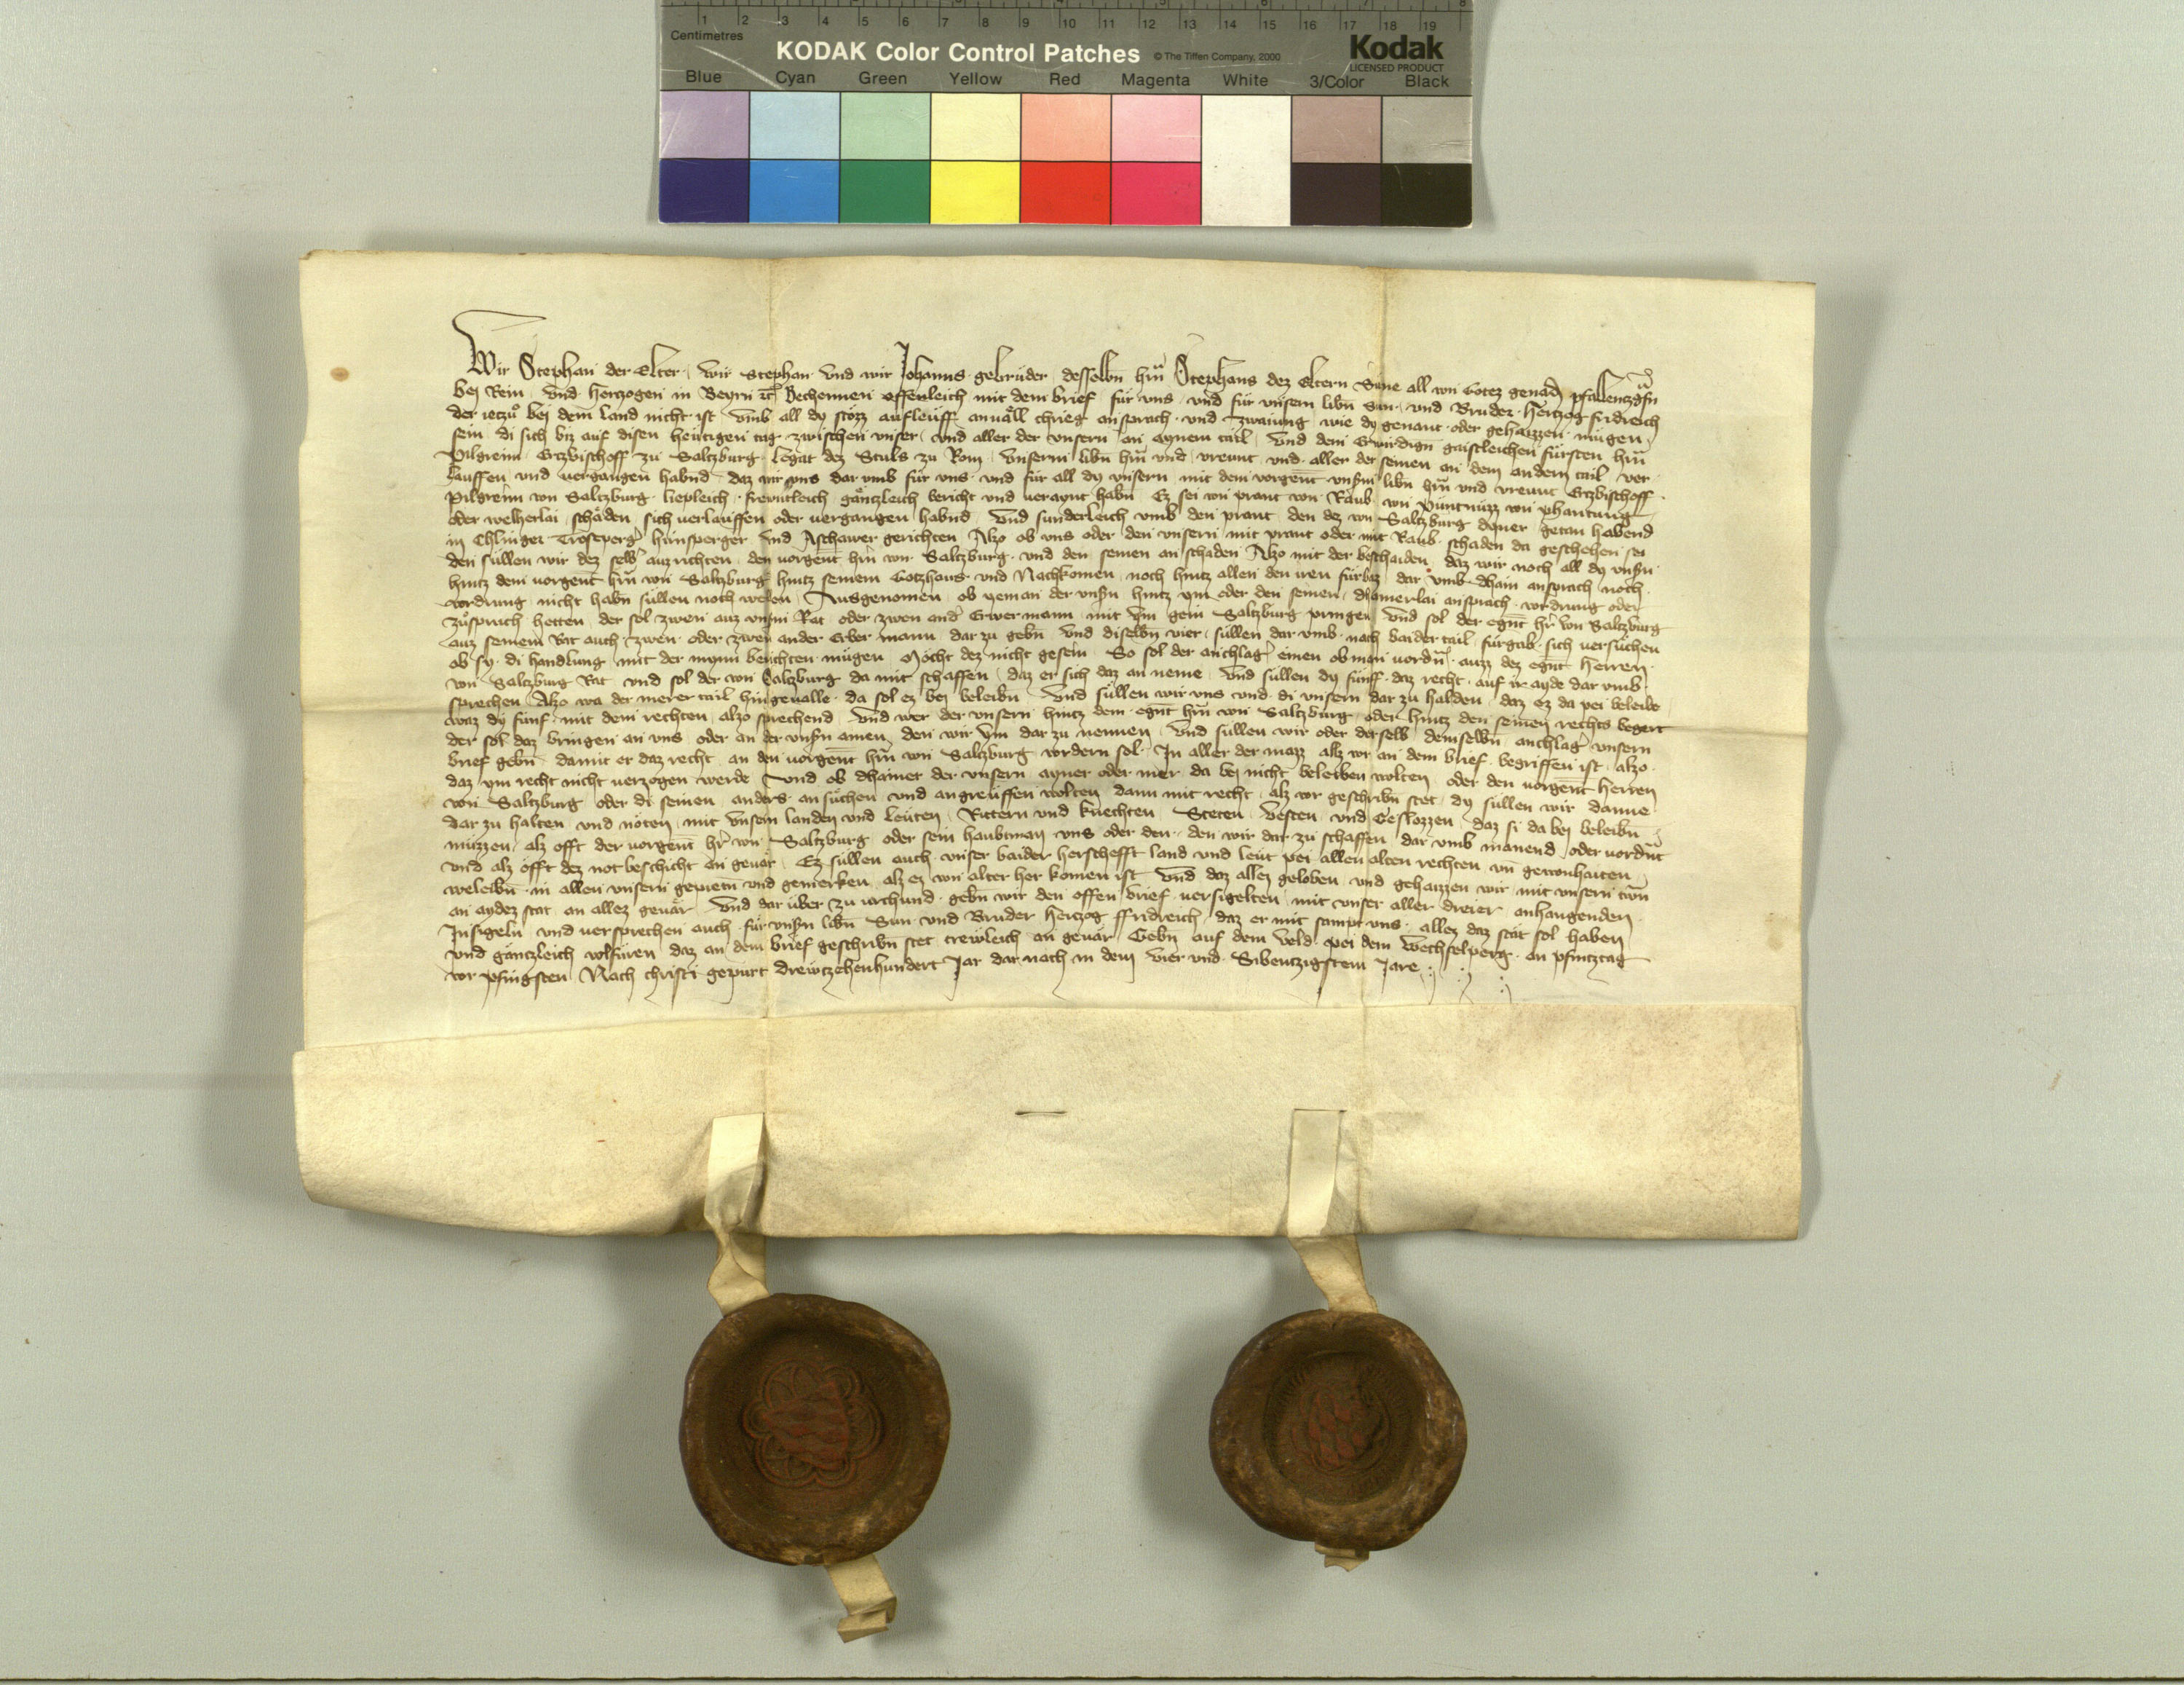 1 2 3 4 5 6 7 8 9 10 11 12 13 14 15 16 17 18 19
Centimetres
KODAK Color Control Patches © The Tiffen Company, 2000 Kodak
LICENSED PRODUCT
Blue Cyan Green Yellow Red Magenta White 3/Color Black
Wir Stephan der Elter, Wir Stephan vnd wir Johanns gebrüder desselbn hrn Stephans dez Eltern Süne all von Gotez genaden pfallentzgrafn
bei Rein vnd Hertzogen in Beyrn etc Bechennen offenleich mit dem brief für vns vnd für vnsern libn Sun vnd Bruder Hertzog fridreich
der ietzu bei dem land nicht ist vmb all dy stözz aufleüff anuäll chrieg ansprach vnd zwaiung wie dy genant oder gehaizzen mügen
sein di sich biz auf disen heutigen tag zwischen vnser vnd aller der vnsern an aynem tail vnd dem Erwirdign gaistleichen fürsten hrn
Pilgreim Ertzbischoff zu Saltzburg Legat dez Stuls zu Rom vnserm libn hrn vnd vreunt vnd aller der seinen an dem andern tail ver
lauffen vnd vergangen habnd daz wir vns dar vmb für vns vnd für all dy vnsern mit dem vorgent vnsm libn hrn vnd vreunt Ertzbischoff
Pilgreim von Saltzburg liepleich freuntleich gäntzleich bericht vnd veraynt habn Ez sei von prant von Raub von püntnüzz von phantung
oder welherlai schäden sich verlauffen oder vergangen habnd Vnd sunderleich vmb den prant den dez von Saltzburg dyner getan habend
in Chlinger Trosperger hünsperger vnd Aschawer gerichten Alzo ob vns oder den vnsern mit prant oder mit Raub schaden da geschehen sei
den süllen wir dez selb auzrichten den vorgent hrn von Saltzburg vnd den seinen an schaden Alzo mit der beschaiden daz wir noch all dy vnsn
hintz dem vorgent hrn von Saltzburg hintz seinem Gotzhaus vnd Nachkomen noch hintz allen den iren fürbaz dar vmb dhain ansprach noch
vordrung nicht habn süllen noch wellen Ausgenomen ob yeman der vnsn hintz ym oder den seinen dhainerlai ansprach vordrung oder
zusprach hetten der sol zwen auz vnsm Rat oder zwen ander Erwer mann mit ym gein Saltzburg pringen vnd sol der egnt hr von Saltzburg
auz seinem Rat auch zwen oder zwen ander Erber mann dar zu gebn vnd diselbn vier süllen dar vmb nach baider tail fürgab sich versuchen
ob sy di handlung mit der mynn berichten mügen Möcht dez nicht gesein So sol der anchlager einen obman vordern auzz dez egnt herren
von Saltzburg Rat vnd sol der von Saltzburg da mit schaffen daz er sich daz an neme vnd süllen dy fünff daz recht auf ir ayde dar vmb
sprechen Alzo wa der merer tail hingevalle da sol ez bei beleibn vnd süllen wir vns vnd di vnsern dar zu halden daz ez da pei beleibe
waz dy fünf mit dem rechten alzo sprechend vnd wer der vnsern hintz dem egnt hrn von Saltzburg oder hintz den seinen rechts begert
der sol daz bringen an vns oder an der vnsn ainen den wir ym dar zu nennen vnd süllen wir oder derselb demselbn anchlager vnsern
brief gebn damit er daz recht an den vorgent hrn von Saltzburg vordern sol In aller der mazz alz vor an dem brief begriffen ist alzo
daz ym recht nicht verzogen werde Vnd ob dhainer der vnsern ayner oder mer da bei nicht beleiben wolten oder den vorgent herren
von Saltzburg oder di seinen anders an suchen vnd angreiffen wolten dann mit recht alz vor geschribn stet dy süllen wir danne
dar zu halten vnd nöten mit vnsern landen vnd leüten Rittern vnd knechten Steten vesten vnd Geslozzen daz si da bei beleibn
müzzen alz offt der vorgent hr von Saltzburg oder sein haubtman vns oder den den wir dar zu schaffen dar vmb manend oder vordnt
vnd alz offt dez not beschicht an gevär Ez süllen auch vnser baider herschefft land vnd leüt pei allen alten rechten vn gewonhaiten
weleibn in allen vnsern gepietn vnd gemerken alz ez von alter her komen ist Vnd daz allez geloben vnd gehaizzen wir mit vnsern trwn
an aydez stat an allez gevär Vnd dar über zu vrchund gebn wir den offen brief versigelten mit vnser aller dreier anhangenden
Insigeln vnd versprechen auch für vnsn libn Sun vnd Bruder Hertzog ffridreich daz er mit sampt vns allez daz stät sol haben
vnd gäntzleich volfüren daz an dem brief geschribn stet trewleich an gevär Gebn auf dem veld pei dem Wechselperg an pfintztag
vor pfingsten Nach christi gepürt drewtzehenhundert Jar dar nach in dem vier vnd Sibentzigstem Jare